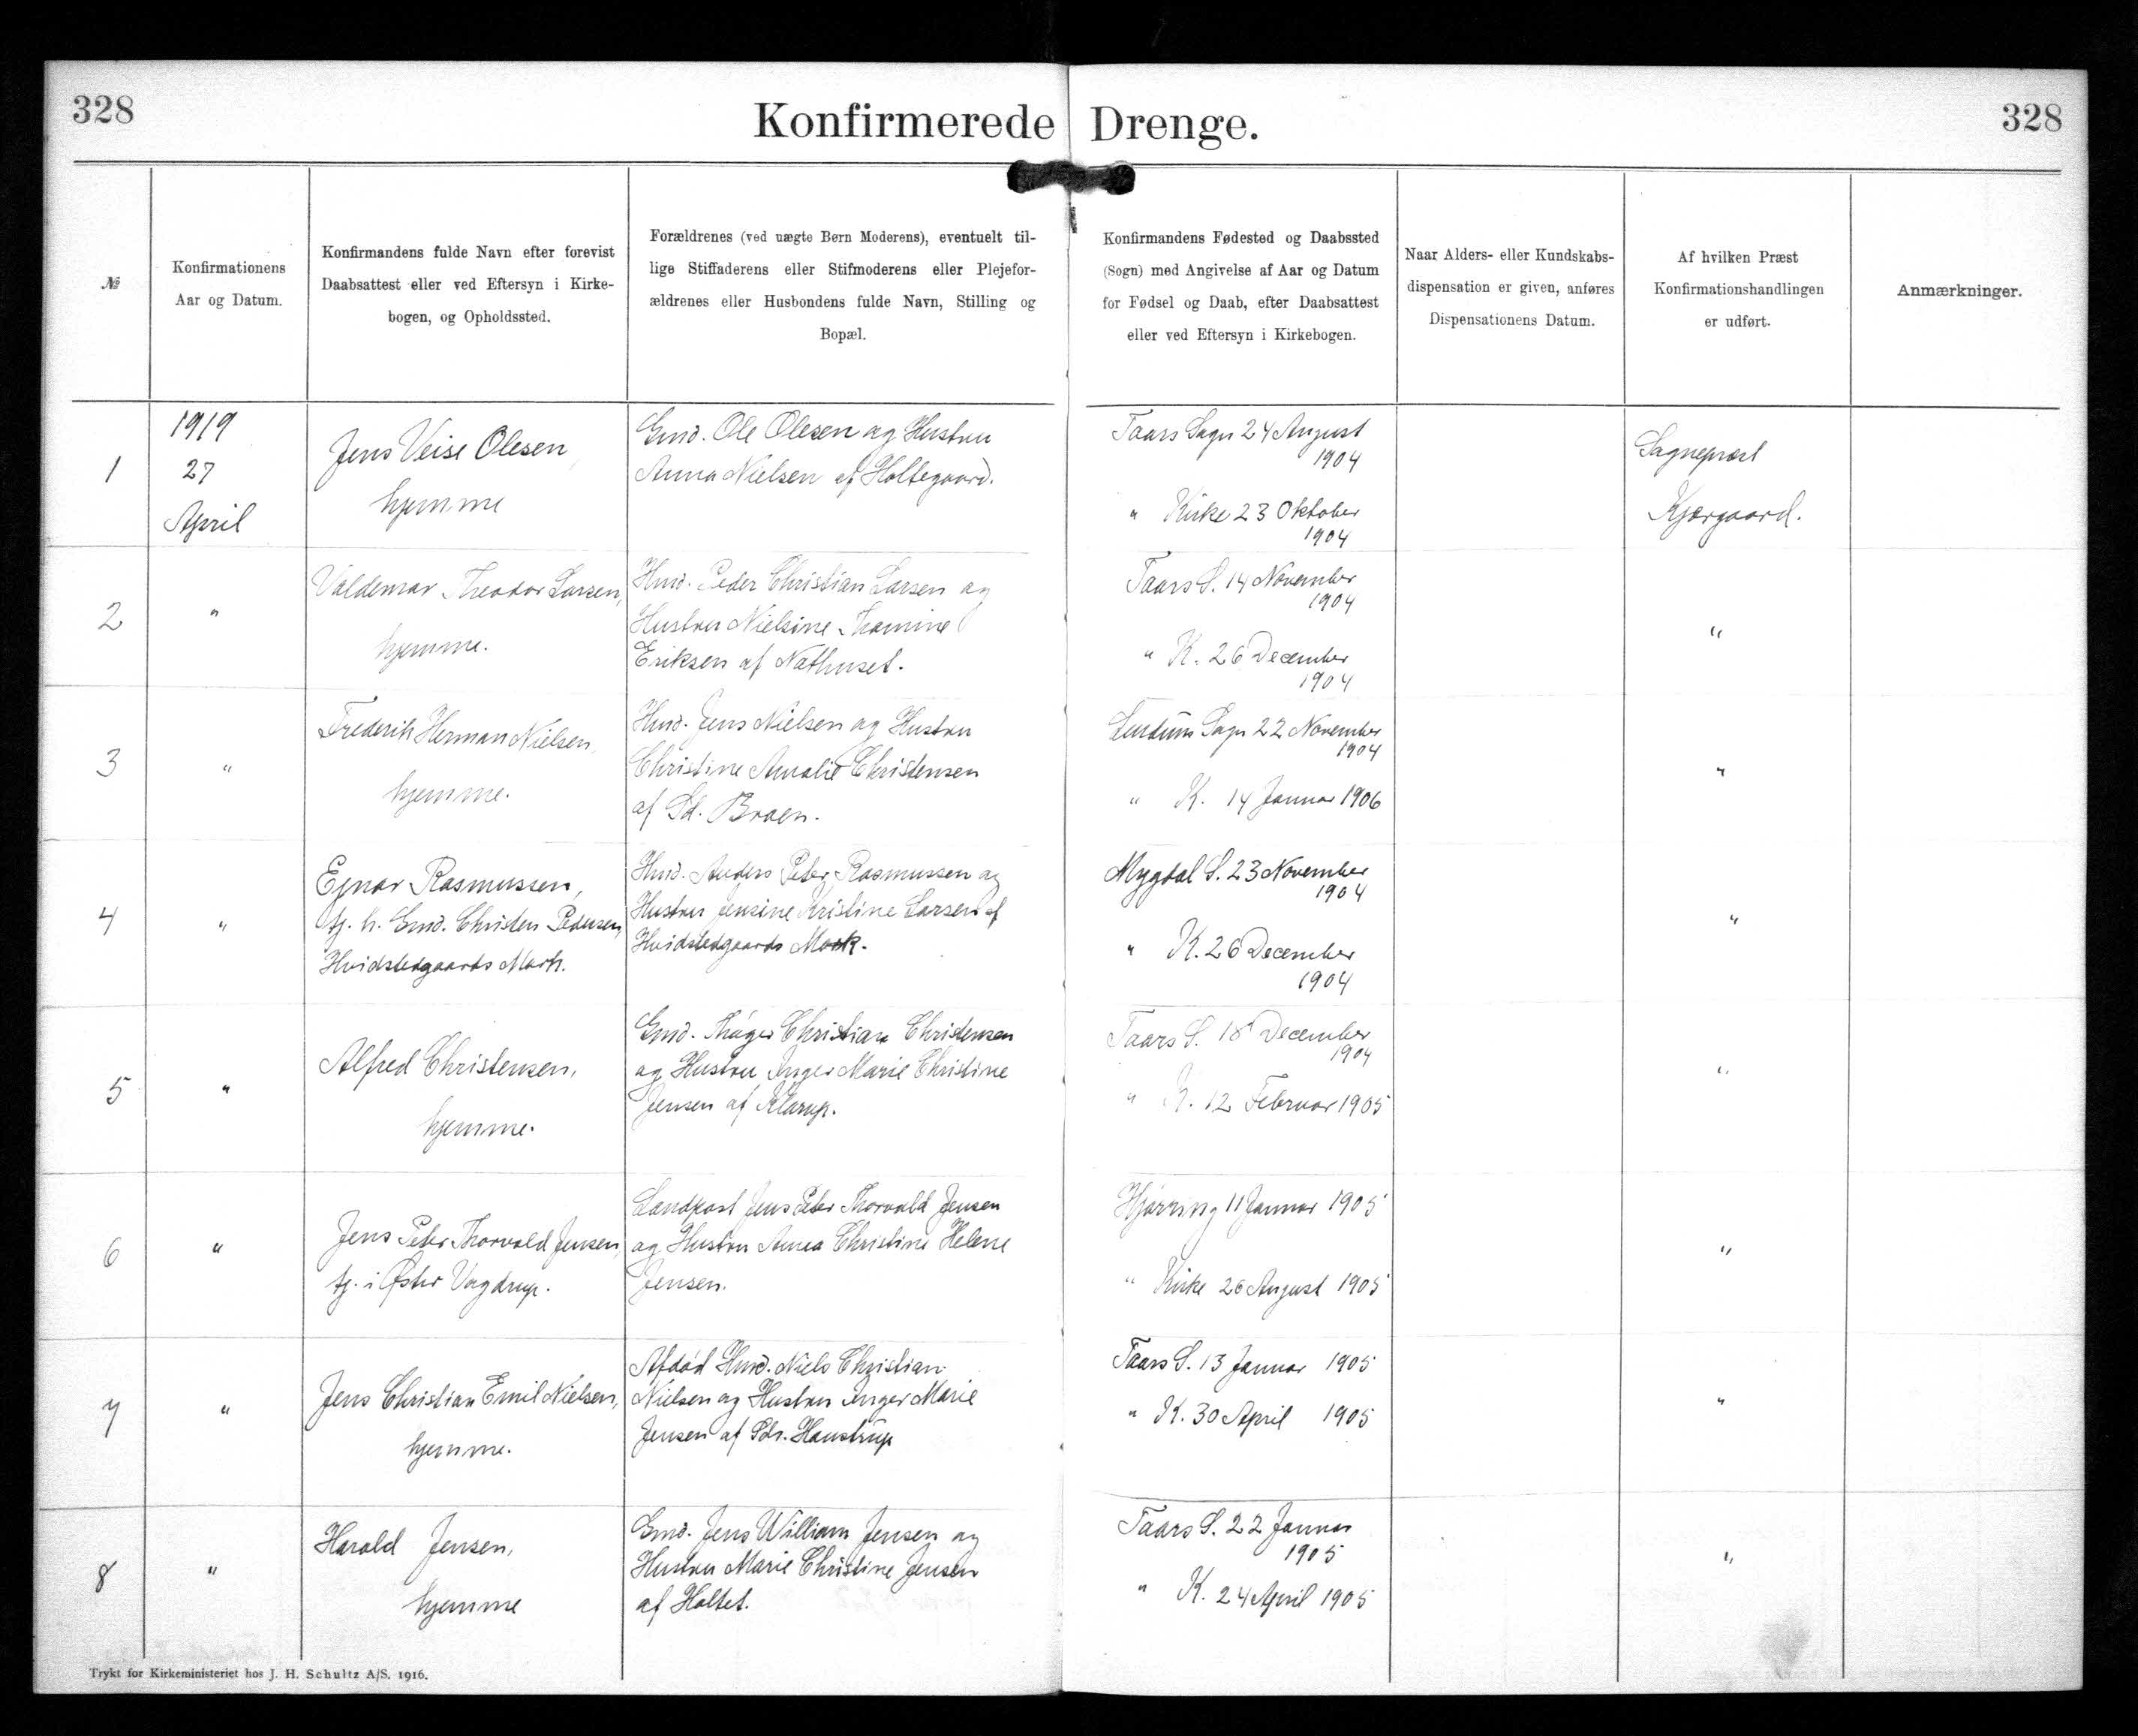 328
Konfirmerede Drenge.
328
№
Konfirmationens
Aar og Datum.
Konfirmandens fulde Navn efter forevist
Daabsattest eller ved Eftersyn i Kirke-
bogen, og Opholdssted.
Forældrenes (ved uægte Børn Moderens), eventuelt til-
lige Stiffaderens eller Stifmoderens eller Plejefor-
ældrenes eller Husbondens fulde Navn, Stilling og
Bopæl.
Konfirmandens Fødested og Daabssted
(Sogn) med Angivelse af Aar og Datum
for Fødsel og Daab, efter Daabsattest
eller ved Eftersyn i Kirkebogen.
Naar Alders- eller Kundskabs-
dispensation er given, anføres
Dispensationens Datum.
Af hvilken Præst
Konfirmationshandlingen
er udført.
Anmærkninger.
1
1919
27
April
Jens Veise Olesen,
hjemme
Gmd. Ole Olesen og Hustru
Anna Nielsen af Holtegaard.
Taars Sogn 24 August
1904
" Kirke 23 Oktober
1904
Sognepræst
Kjærgaard.
2
"
Valdemar Theodor Larsen,
hjemme.
Hmd. Peder Christian Larsen og
Hustru Nielsine Thomine
Eriksen af Nathuset.
Taars S. 14 November
1904
" K. 26 December
1904
"
3
"
Frederik Herman Nielsen,
hjemme.
Hmd. Jens Nielsen og Hustru
Christine Amalie Christensen
af Sd. Broen.
Lendum Sogn 22 November
1904
" K. 14 Januar 1906
"
4
"
Ejnar Rasmussen,
tj. h. Gmd. Christen Pedersen,
Hvidstedgaards Mark.
Hmd. Anders Peter Rasmussen og
Hustru Jensine Kristine Larsen af
Hvidstedgaards Mark.
Mygdal S. 23 November
1904
" K. 26 December
1904
"
5
"
Alfred Christensen,
hjemme.
Gmd. Thøger Christian Christensen
og Hustru Inger Marie Christine
Jensen af Klarup.
Taars S. 18 December
1904
" K. 12 Februar 1905
"
6
"
Jens Peter Thorvald Jensen,
tj. i Øster Vogdrup.
Landpost Jens Peter Thorvald Jensen
og Hustru Anna Christine Helene
Jensen.
Hjørring 11 Januar 1905
" Kirke 26 August 1905
"
7
"
Jens Christian Emil Nielsen,
hjemme.
Afdød Hmd. Niels Christian
Nielsen og Hustru Inger Marie
Jensen af Sdr. Haustrup
Taars S. 13 Januar 1905
" K. 30 April 1905
"
8
"
Harald Jensen,
hjemme
Gmd. Jens William Jensen og
Hustru Marie Christine Jensen
af Holtet.
Taars S. 22 Januar
1905
" K. 24 April 1905
"
Trykt for Kirkeministeriet hos J. H. Schultz A/S. 1916.